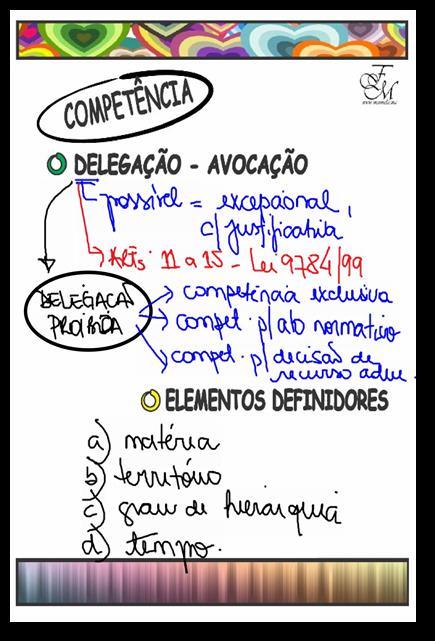 COMPETÊNCIA
FM
DELEGAÇÃO - AVOCAÇÃO
possível = excepcional,
c/ justificativa
Arts. 11 a 15 - Lei 9784/99
DELEGAÇÃO
PROIBIDA
competência exclusiva
compet. p/ ato normativo
compet. p/ decisão de
recurso adm.
ELEMENTOS DEFINIDORES
a) matéria
b) território
c) grau de hierarquia
d) tempo.